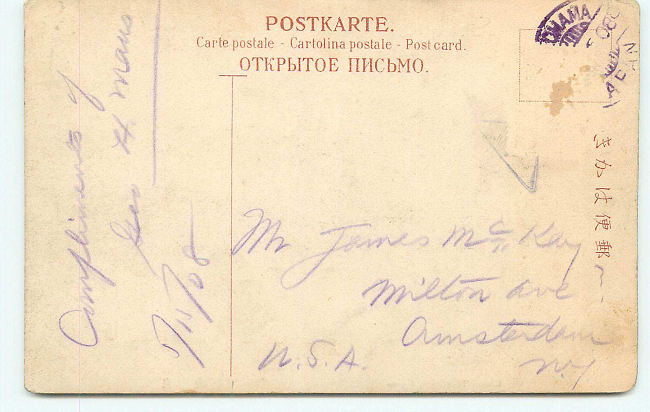 POSTKARTE.
Carte postale - Cartolina postale - Post card.
ОТКРЫТОЕ ПИСЬМО.
きかは便郵
Compliments of
Geo H.
7/11/08
Mr. James McKay
Milton Ave
Amsterdam
N.Y
U.S.A.